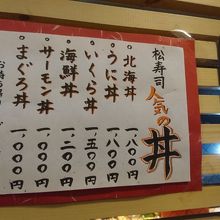 松寿司
人気の丼
北海丼 一、八〇〇円
うに丼 一、八〇〇円
いくら丼 一、五〇〇円
海鮮丼 一、二〇〇円
サーモン丼 一、〇〇〇円
まぐろ丼 一、〇〇〇円